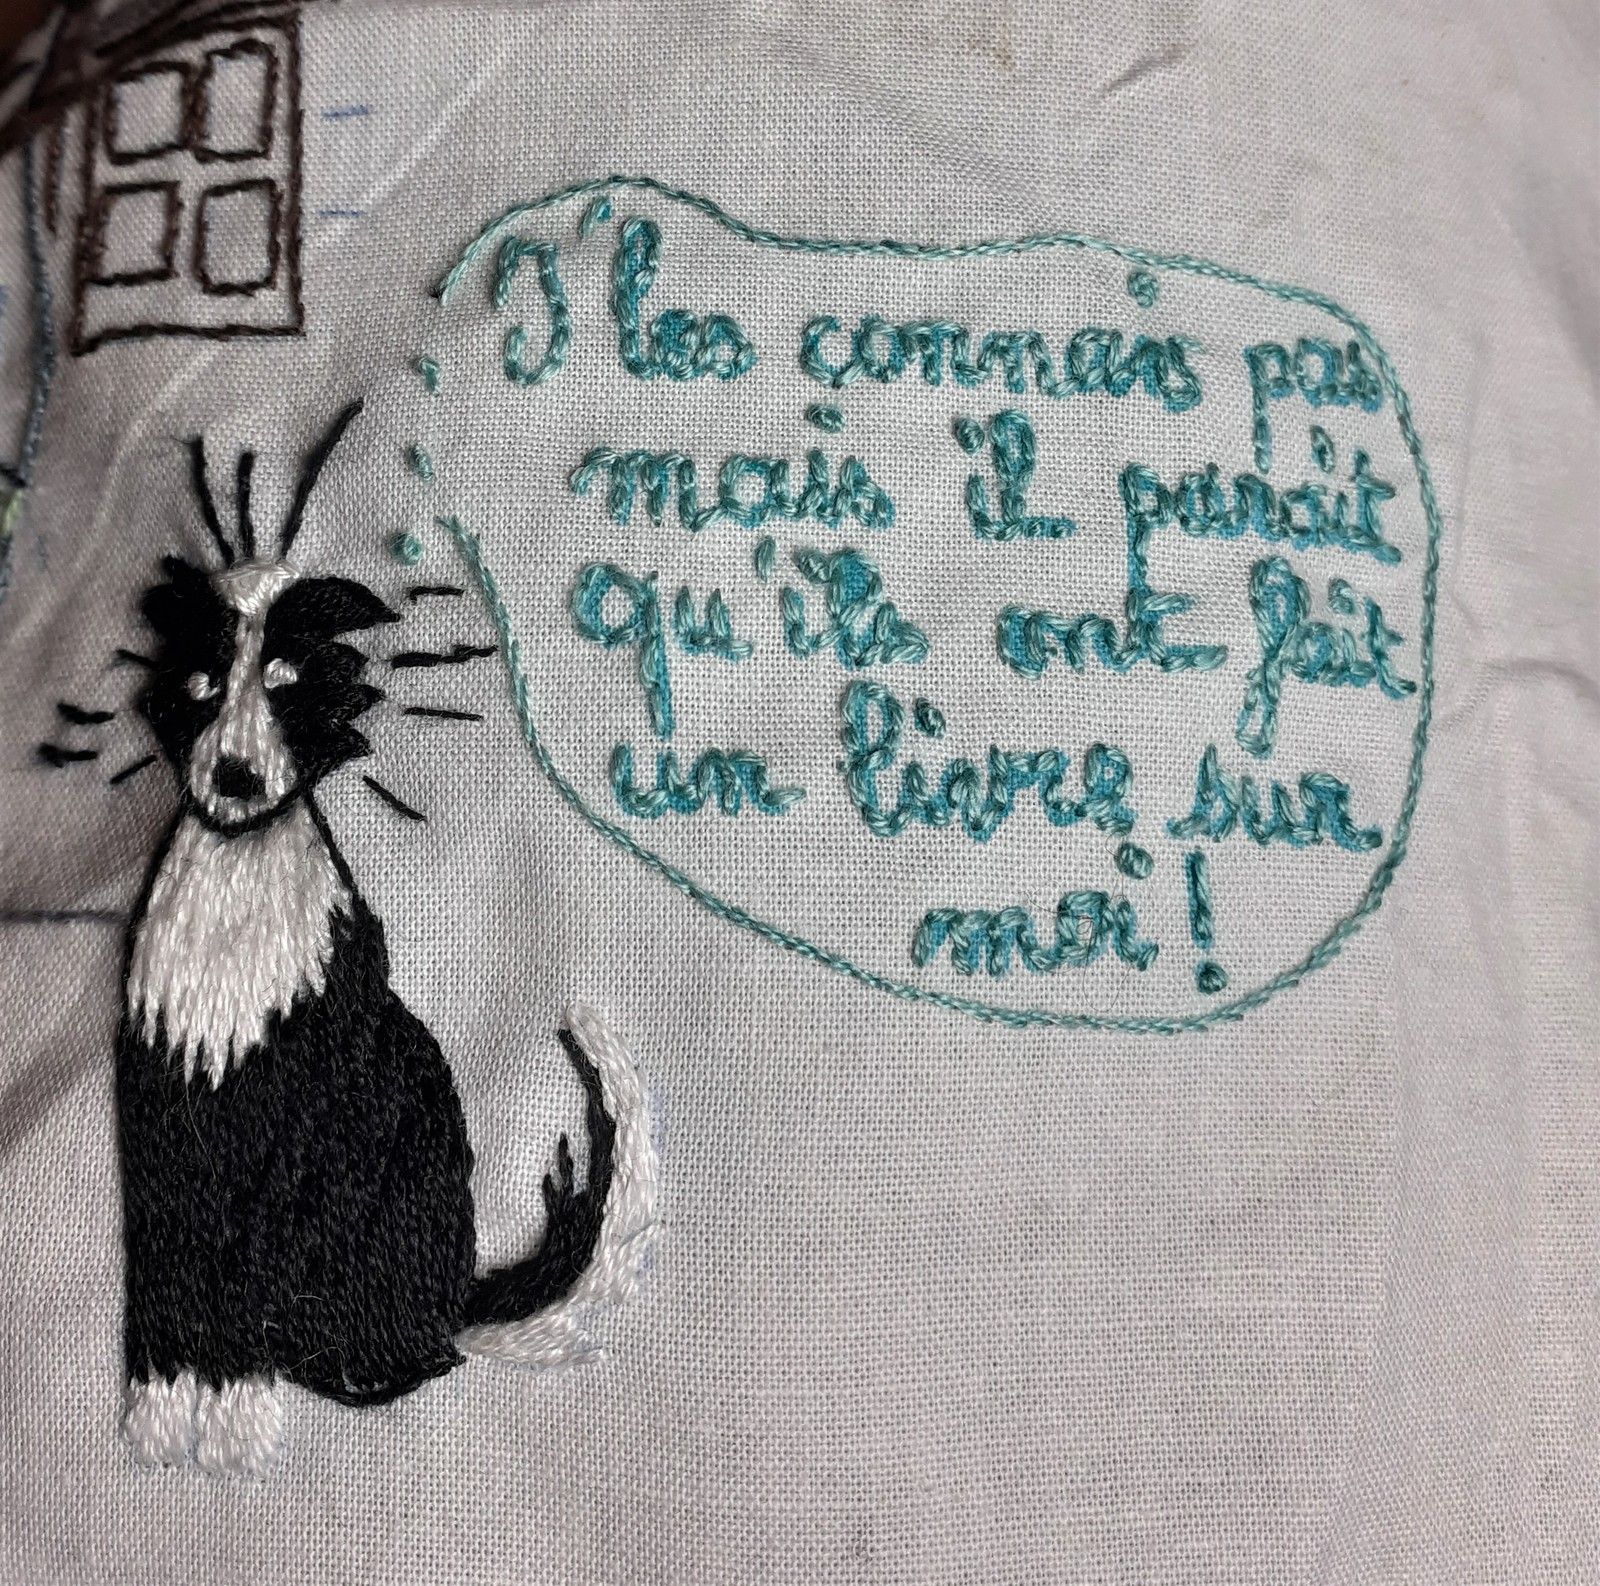 J'les connais pas
mais il parait
qu'ils ont fait
un livre sur
moi !